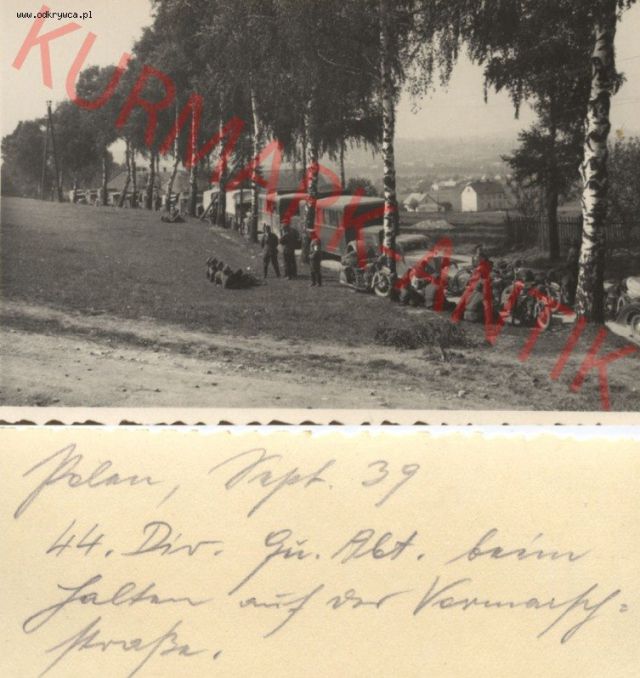 www.odkrywca.pl
KURMARK-ANTIK
Polen, Sept. 39
44. Div. Gu. Abt. beim
Halten auf der Vormarsch=
straße.